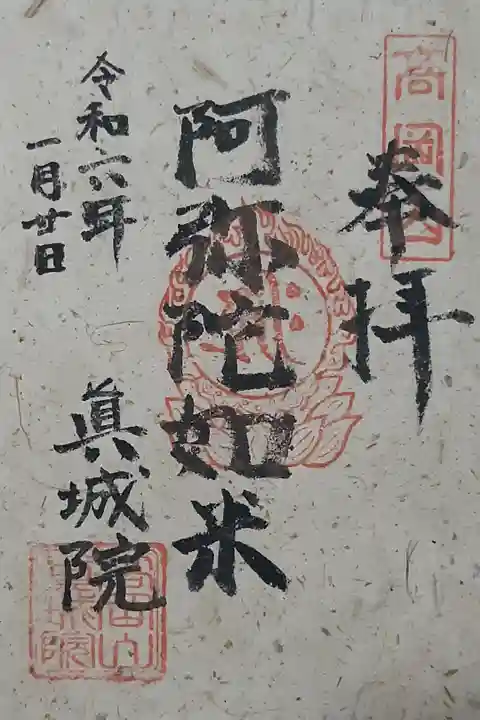 高岡山
奉拝
阿弥陀如来
令和六年
一月廿日
眞城院